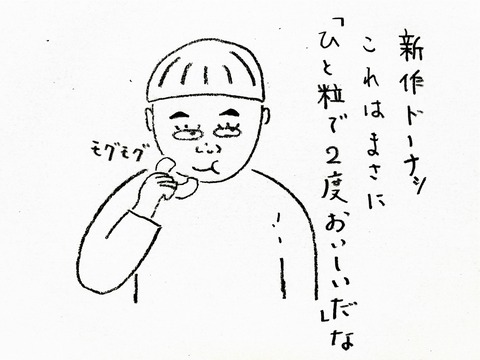 新作ドーナツ
これはまさに
「ひと粒で2度おいしいだな」
モグモグ